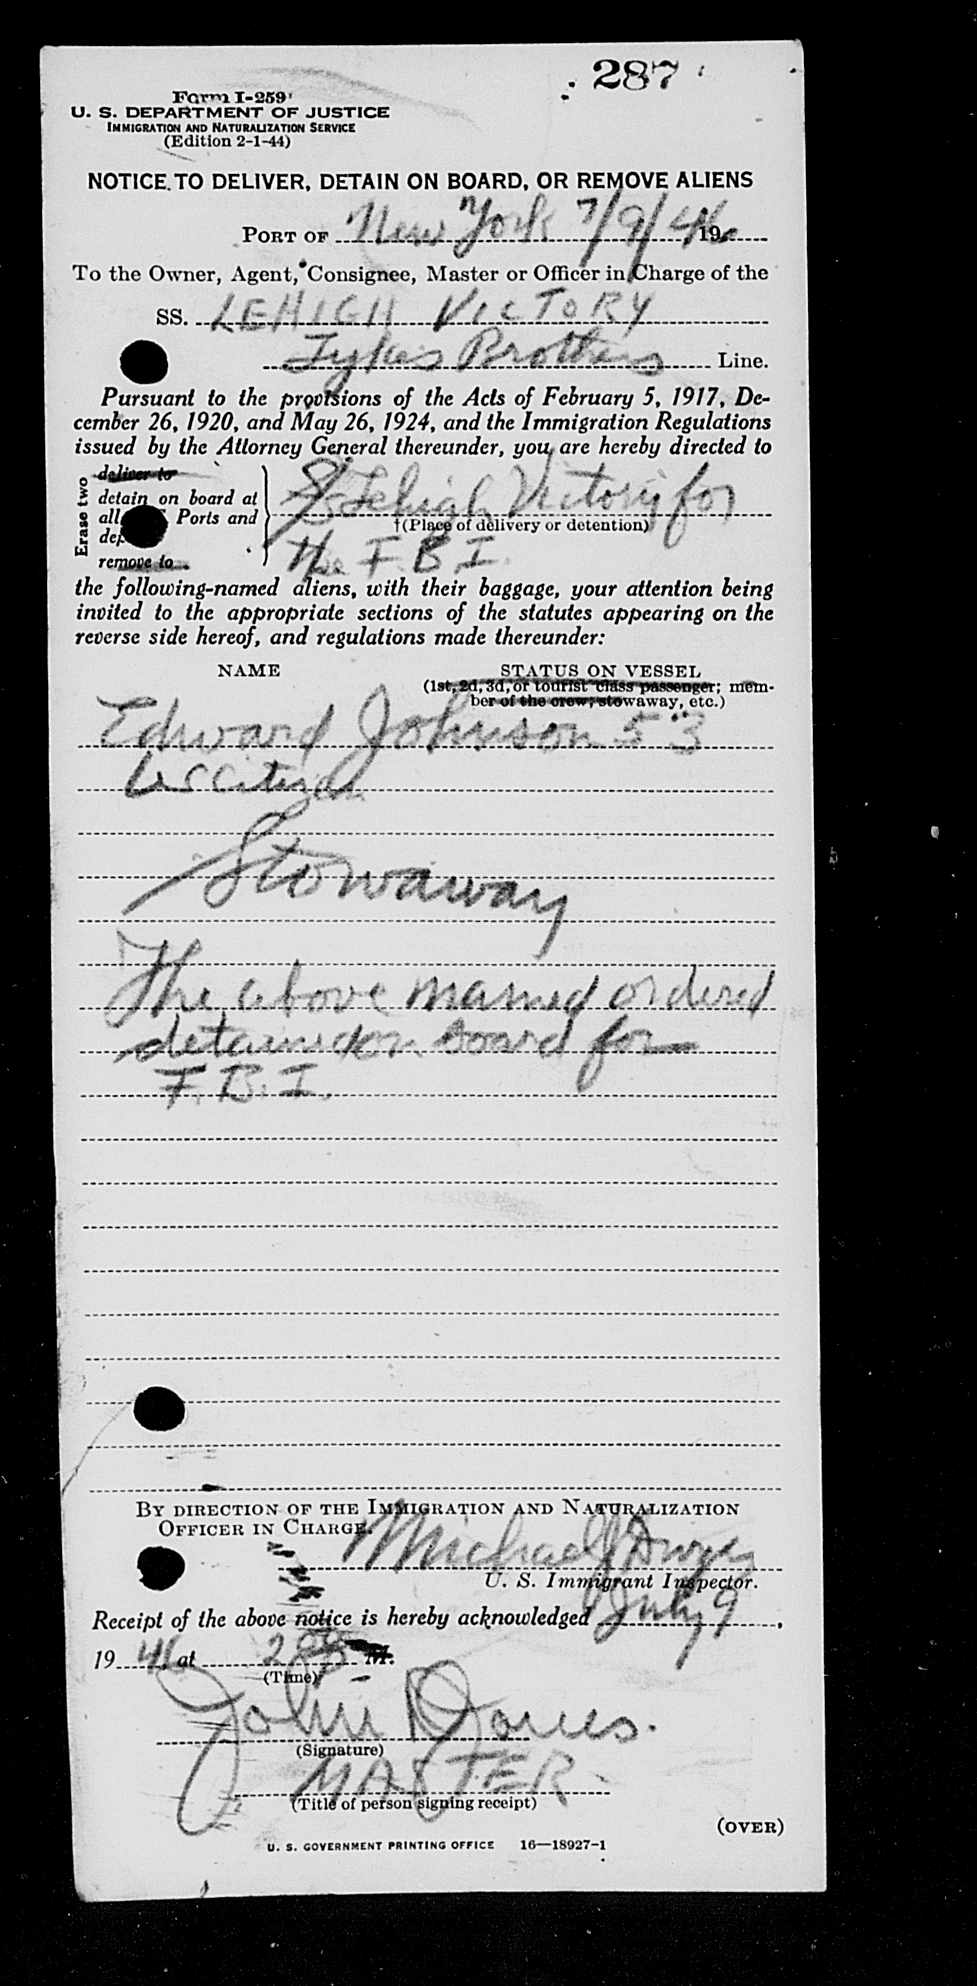 287
Form I-259
U. S. DEPARTMENT OF JUSTICE
IMMIGRATION AND NATURALIZATION SERVICE
(Edition 2-1-44)
NOTICE TO DELIVER, DETAIN ON BOARD, OR REMOVE ALIENS
PORT OF New York 7/9/46 19
To the Owner, Agent, Consignee, Master or Officer in Charge of the
SS. LEHIGH VICTORY
Lykes Brothers Line.
Pursuant to the provisions of the Acts of February 5, 1917, De-
cember 26, 1920, and May 26, 1924, and the Immigration Regulations
issued by the Attorney General thereunder, you are hereby directed to
Erase two
deliver to
detain on board at
all Ports and
remove to
Lehigh Victory for
†(Place of delivery or detention)
the F.B.I.
the following-named aliens, with their baggage, your attention being
invited to the appropriate sections of the statutes appearing on the
reverse side hereof, and regulations made thereunder:
NAME STATUS ON VESSEL
(1st, 2d, 3d, or tourist class passenger; mem-
ber of the crew; stowaway, etc.)
Edward Johnson 53
US Citizen
Stowaway
The above named ordered
detained on board for
F.B.I.
BY DIRECTION OF THE IMMIGRATION AND NATURALIZATION
OFFICER IN CHARGE.
Michael J Dwyer
U. S. Immigrant Inspector.
Receipt of the above notice is hereby acknowledged July 9,
19 46 at 2 M.
(Time)
John D
(Signature)
MASTER
(Title of person signing receipt)
(OVER)
U. S. GOVERNMENT PRINTING OFFICE 16—18927-1